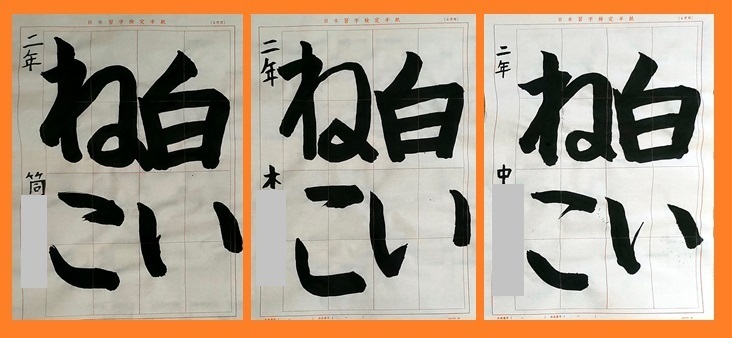 日本習字検定半紙
白い
ねこ
二年
筒
日本習字検定半紙
白い
ねこ
二年
木
日本習字検定半紙
白い
ねこ
二年
中